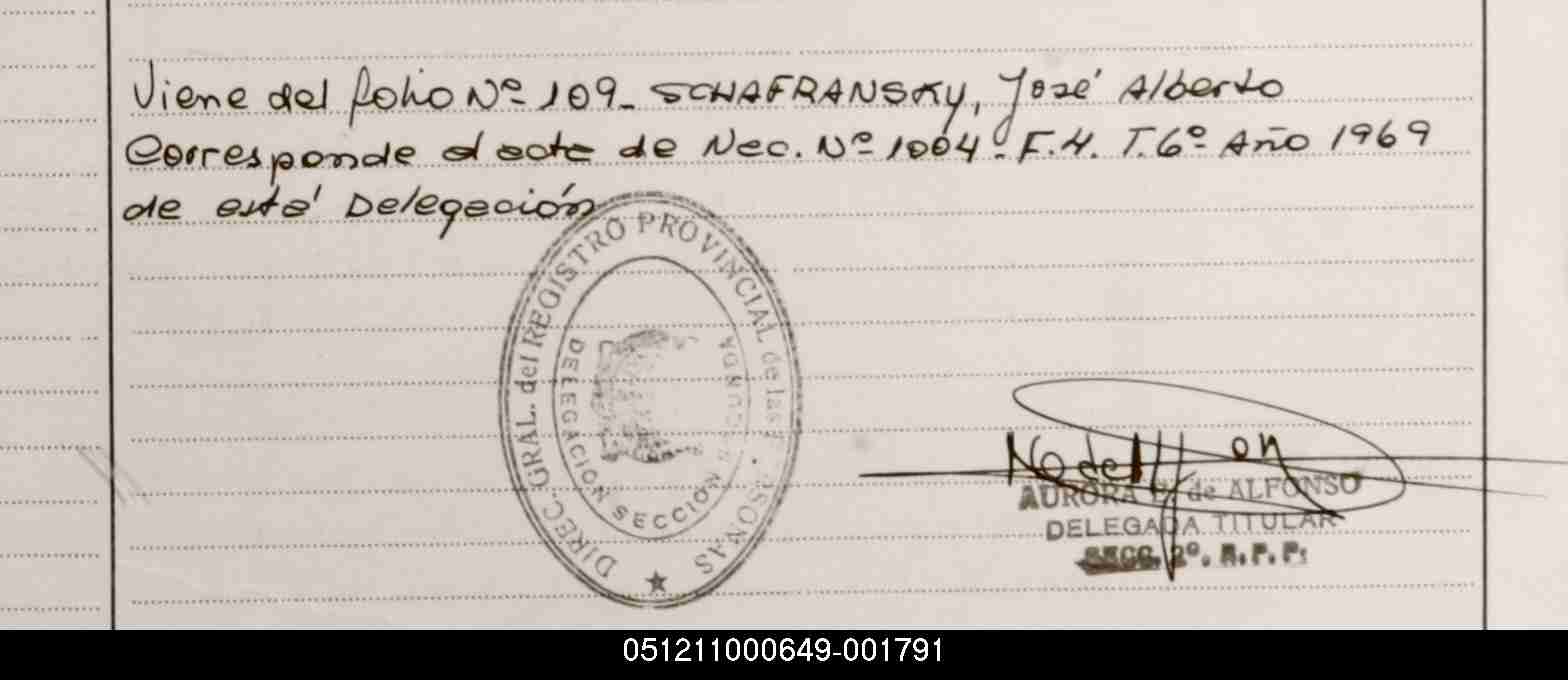 Viene del folio Nº 109_ SCHAFRANSKY, José Alberto
Corresponde al acta de Nac. Nº 1004. F.H. T.6º Año 1969
de esta Delegación
DIREC. GRAL. del REGISTRO PROVINCIAL de las PERSONAS
DELEGACION SECCION SEGUNDA
AURORA de ALFONSO
DELEGADA TITULAR
SECC. 2º. R.P.P.
051211000649-001791